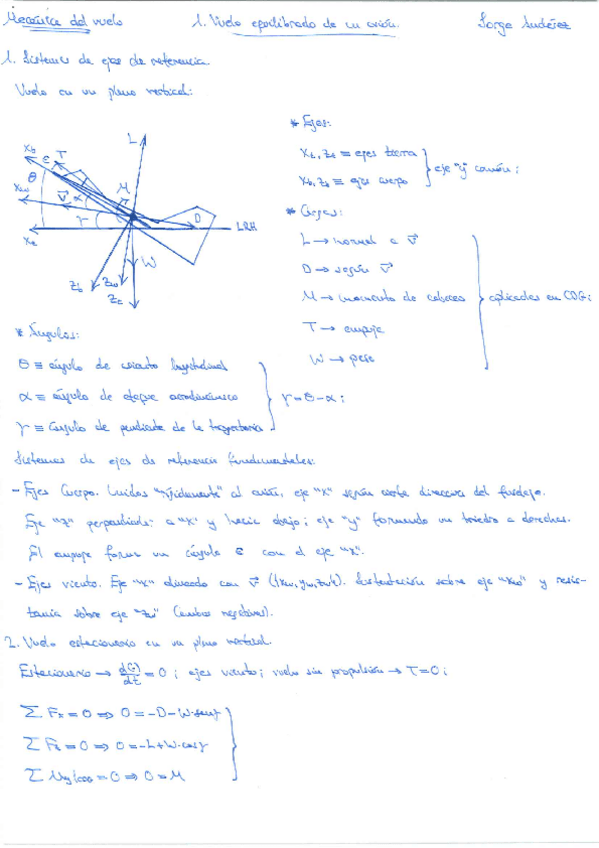 Mecánica del vuelo 1. Vuelo equilibrado de un avión. Jorge
1. Sistemas de ejes de referencia.
Vuelo en un plano vertical:
* Ejes:
xt, zt ≡ ejes tierra
xb, zb ≡ ejes cuerpo
eje "y" común;
* Cargas:
L → normal a v⃗
D → según v⃗
M → momento de cabeceo
T → empuje
W → peso
aplicadas en CDG;
L
xb
ε
T
θ
xw
v⃗
α
M
γ
D
LRH
W
zb
zw
* Ángulos:
θ ≡ ángulo de asiento longitudinal
α ≡ ángulo de ataque aerodinámico
γ ≡ ángulo de pendiente de la trayectoria
γ = θ - α;
Sistemas de ejes de referencia fundamentales:
- Ejes Cuerpo. Unidos "rígidamente" al avión, eje "x" según cierta directriz del fuselaje.
Eje "z" perpendicular a "x" y hacia abajo; eje "y" formando un triedro a derechas.
El empuje forma un ángulo ε con el eje "x".
- Ejes viento. Eje "x" alineado con v⃗ (xw, yw, zw). Sustentación sobre eje "xw" y resis-
tencia sobre eje "zw" (ambas negativas).
2. Vuelo estacionario en un plano vertical.
Estacionario → d( )/dt = 0; ejes viento; vuelo sin propulsión → T = 0;
∑ Fx = 0 ⇒ 0 = -D - W·senγ
∑ Fz = 0 ⇒ 0 = -L + W·cosγ
∑ My|CDG = 0 ⇒ 0 = M